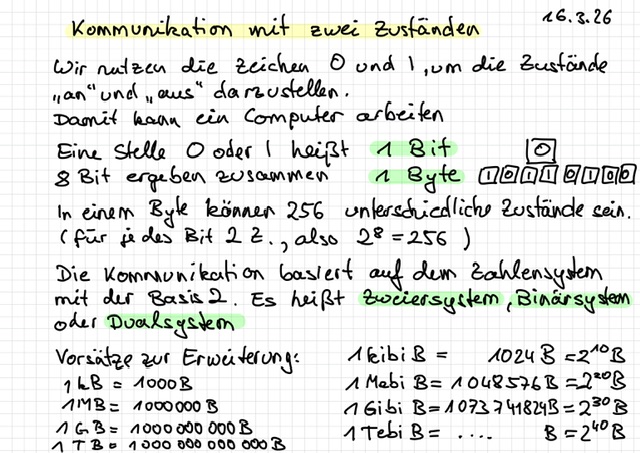 Kommunikation mit zwei Zuständen 16.3.26
Wir nutzen die Zeichen 0 und 1, um die Zustände
„an" und „aus" darzustellen.
Damit kann ein Computer arbeiten
Eine Stelle 0 oder 1 heißt 1 Bit 0
8 Bit ergeben zusammen 1 Byte 10110100
In einem Byte können 256 unterschiedliche Zustände sein.
(für jedes Bit 2 Z., also 2⁸ = 256 )
Die Kommunikation basiert auf dem Zahlensystem
mit der Basis 2. Es heißt Zweiersystem, Binärsystem
oder Dualsystem
Vorsätze zur Erweiterung:
1 kB = 1000 B
1 MB = 1000 000 B
1 GB = 1000 000 000 B
1 TB = 1000 000 000 000 B
1 Kibi B = 1024 B = 2¹⁰ B
1 Mebi B = 1 048 576 B = 2²⁰ B
1 Gibi B = 1 073 741 824 B = 2³⁰ B
1 Tebi B = .... B = 2⁴⁰ B